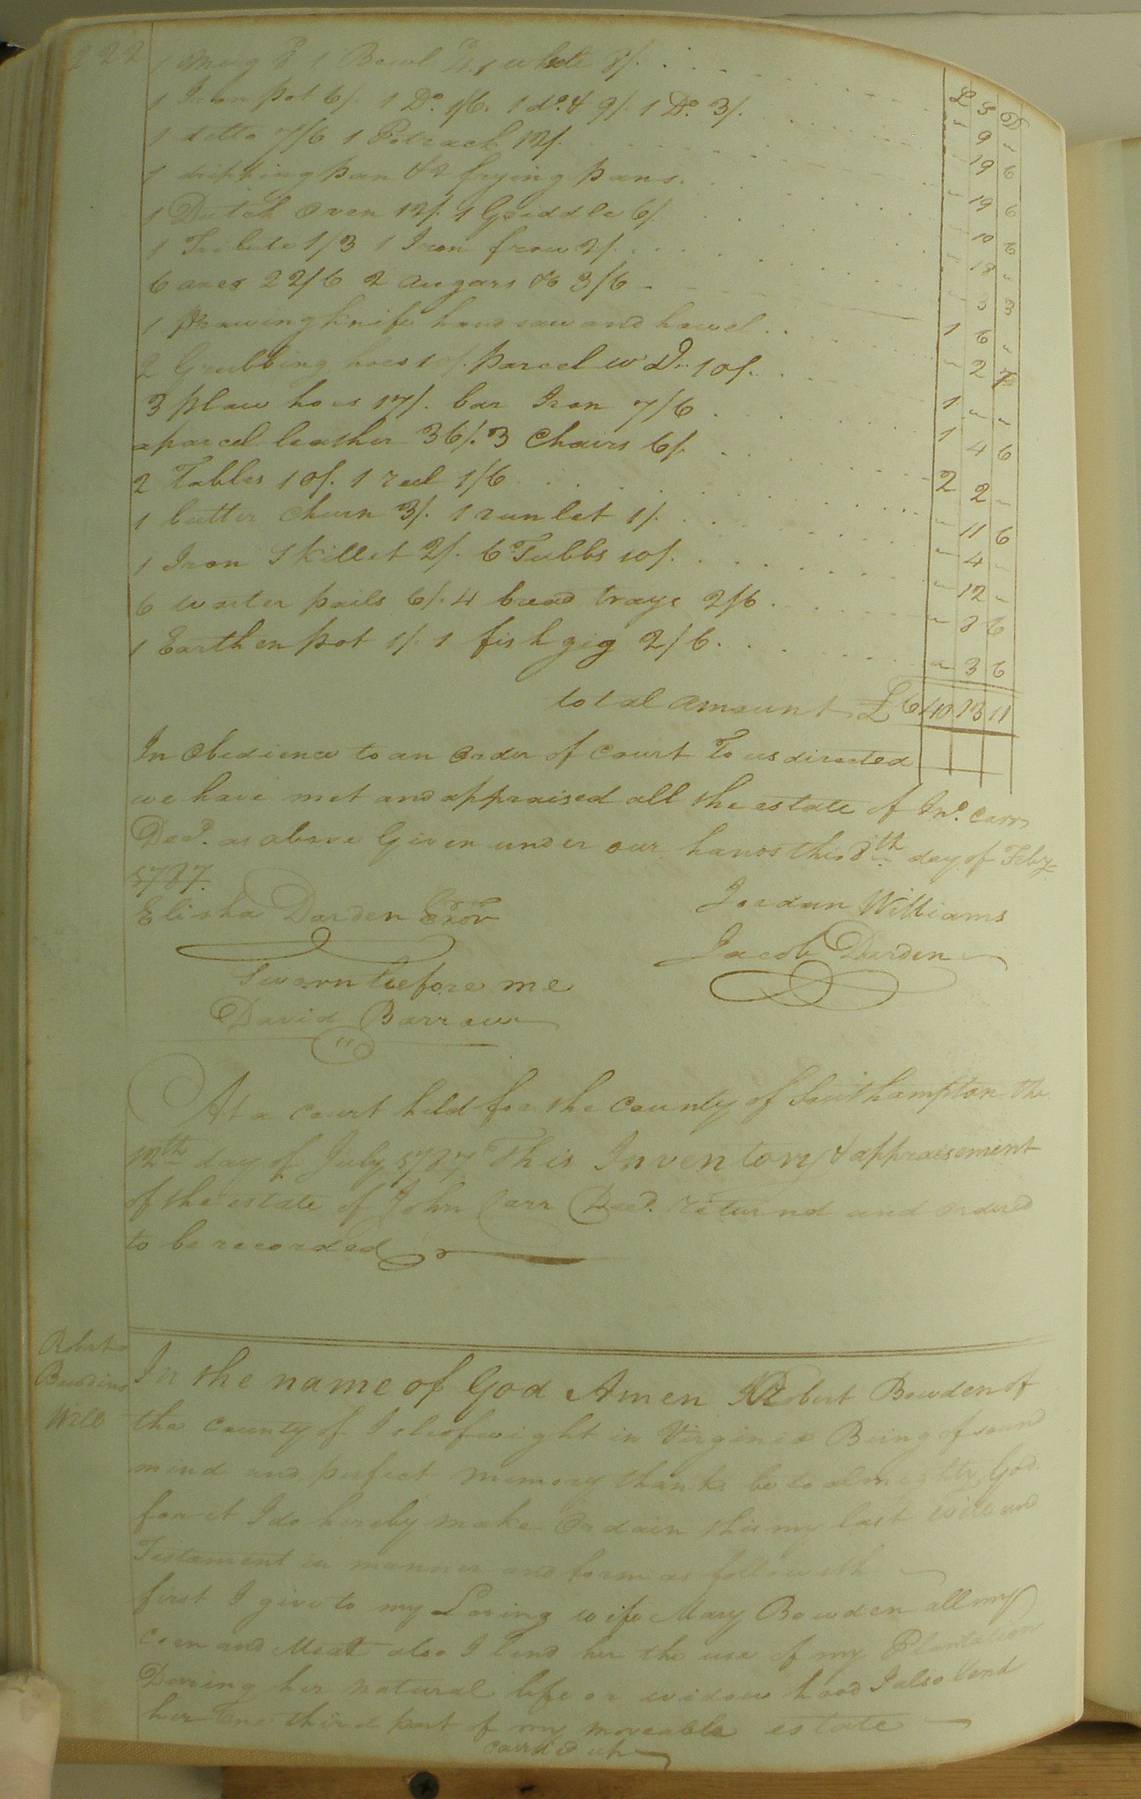 222
1 mug & 1 Bowl white 8/.
£ S D
1 Iron pot 6/. 1 Do. 1/6. 1 do. & 9/. 1 Do. 3/. - 9 -
1 ditto 7/6 1 Potrack 12/. - 19 6
1 dripping pan & 2 frying pans. - 19 6
1 Dutch oven 12/. 1 Griddle 6/. - 10 6
1 1/3 1 Iron frow 2/. - 18 -
6 axes 22/6 2 augars &c 3/6 - - 3 3
1 Drawing knife hand saw and howel 1 6 -
2 Grubbing hoes 10/. parcel 10/. - 2 7
3 plow hoes 17/. bar Iron 7/6 1 - -
a parcel leather 36/. 3 Chairs 6/. 1 4 6
2 Tables 10/. 1 reel 1/6 2 2 -
1 butter churn 3/. 1 runlet 1/. - 11 6
1 Iron Skillet 2/. 6 Tubbs 10/. - 4 -
6 water pails 6/. 4 bread trays 2/6 - 12 -
1 Earthen pot 1/. 1 fish gig 2/6. - 8 6
- 3 6
total amount £640 13 11
In Obedience to an order of court To us directed
we have met and appraised all the estate of Jno. Carr
Decd. as above Given under our hands this 8th day of Feby
1787.
Elisha Darden Exor
Jordan Williams
Jacob Darden
Sworn before me
David Barrow
At a court held for the county of Southampton the
12th day of July 1787 This Inventory & appraisement
of the estate of John Carr Decd. returnd and ordered
to be recorded
Robert
Bowdens
Will
In the name of God Amen I Robert Bowden of
the county of Isleofwight in Virginia Being of sound
mind and perfect memory thanks be to almighty God
for it I do hereby make Ordain this my last will and
Testament in manner and form as followeth
first I give to my Loving wife Mary Bowden all my
corn and Meat also I lend her the use of my Plantation
During her natural life or widow hood I also lend
her one third part of my moveable estate
carried up